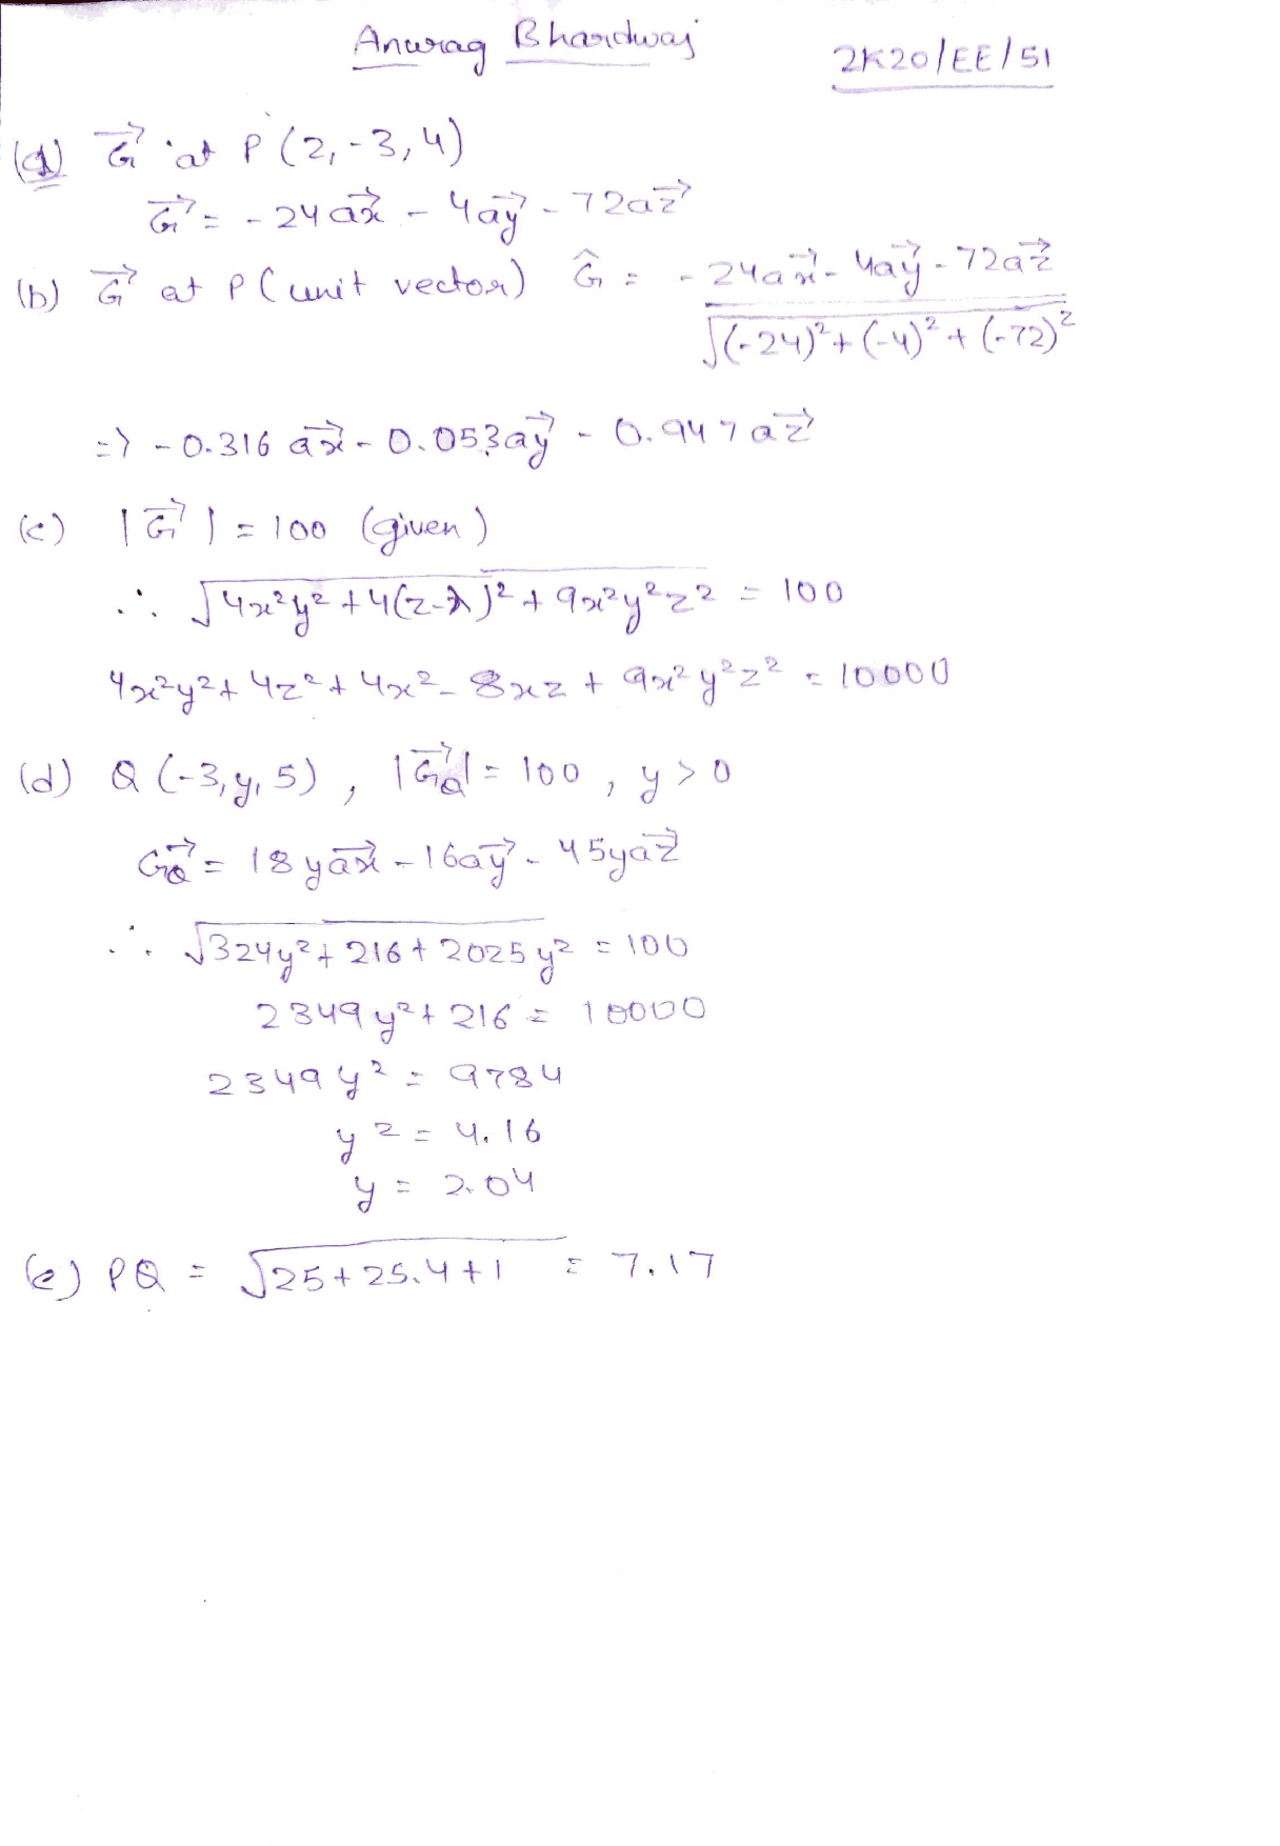 Anurag Bhardwaj 2K20/EE/51
(a) G⃗ at P (2, -3, 4)
G⃗ = - 24 ax⃗ - 4ay⃗ - 72az⃗
(b) G⃗ at P (unit vector) Ĝ = - 24ax⃗ - 4ay⃗ - 72az⃗
√(-24)² + (-4)² + (-72)²
=> - 0.316 ax⃗ - 0.053ay⃗ - 0.947 az⃗
(c) |G⃗| = 100 (given)
∴ √4x²y² + 4(z-x)² + 9x²y²z² = 100
4x²y² + 4z² + 4x² - 8xz + 9x²y²z² = 10000
(d) Q (-3, y, 5), |G⃗Q| = 100, y > 0
G⃗Q = 18 yax⃗ - 16ay⃗ - 45yaz⃗
∴ √324y² + 216 + 2025y² = 100
2349 y² + 216 = 10000
2349 y² = 9784
y² = 4.16
y = 2.04
(e) PQ = √25 + 25.4 + 1 = 7.17